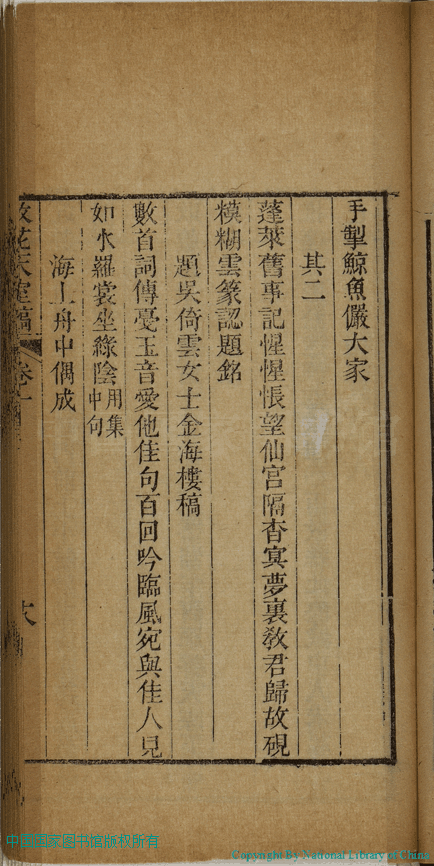 手掣鯨魚儼大家
其二
蓬萊舊事記惺惺悵望仙宮隔杳冥夢裏教君歸故硯
糢糊雲篆認題銘
題吳倚雲女士金海樓稿
數首詞傳戞玉音愛他佳句百回吟臨風宛與佳人見
如水羅裳坐綠陰用集中句
海上舟中偶成
花天室稿 卷一
中国国家图书馆版权所有
Copyright By National Library of China